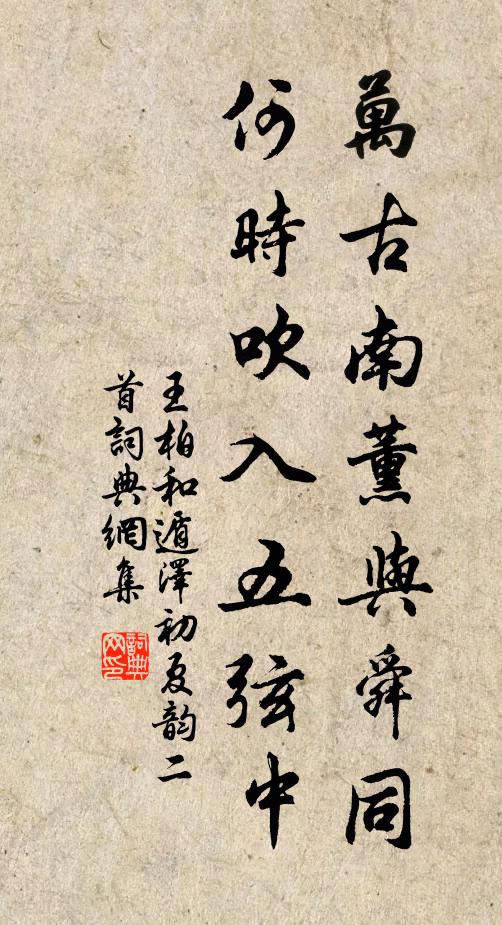 萬古南薰與舜同
何時吹入五弦中
王柏和遁澤初夏韵二
首詞典網集
詞典
网印